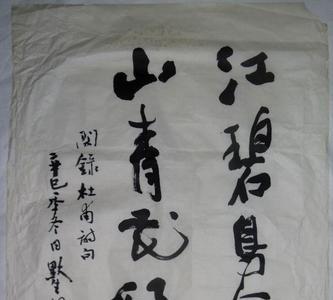 江碧鳥
山青花
閑錄杜甫詩句
辛巳冬日